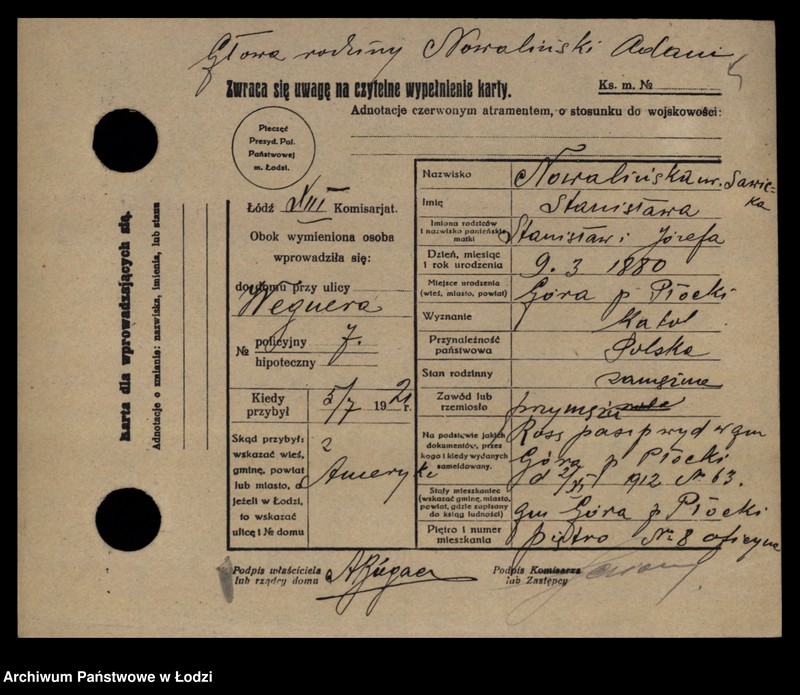 Głowa rodziny Nowaliński Adam
Zwraca się uwagę na czytelne wypełnienie karty.
Ks. m. №
Adnotacje czerwonym atramentem, o stosunku do wojskowości:
Pieczęć
Prezyd. Pol.
Państwowej
m. Łodzi.
Karta dla wprowadzających się.
Adnotacje o zmianie: nazwiska, imienia, lub stanu
Łódź XIII Komisarjat.
Obok wymieniona osoba
wprowadziła się:
do domu przy ulicy
Wegnera
№ policyjny 7.
hipoteczny
Kiedy przybył 5/7 1921 r.
Skąd przybył:
wskazać wieś,
gminę, powiat
lub miasto, a
jeżeli w Łodzi,
to wskazać
ulicę i № domu
z Ameryki
Nazwisko Nowalińska ur. Sawicka
Imię Stanisława
Imiona rodziców i nazwisko panieńskie matki Stanisław i Józefa
Dzień, miesiąc i rok urodzenia 9. 3 1880
Miejsce urodzenia (wieś, miasto, powiat) Góra p Płocki
Wyznanie Katol
Przynależność państwowa Polska
Stan rodzinny zamężna
Zawód lub rzemiosło przy mężu
Na podstawie jakich dokumentów, przez kogo i kiedy wydanych zameldowany.
Ross paszp wyd w gm
Góra p Płocki
912 № 63.
Stały mieszkaniec (wskazać gminę, miasto, powiat, gdzie zapisany do ksiąg ludności) gm Góra p Płocki
Piętro i numer mieszkania I piętro № 8 oficyna
Podpis właściciela
lub rządcy domu
Podpis Komisarza
lub Zastępcy
Archiwum Państwowe w Łodzi